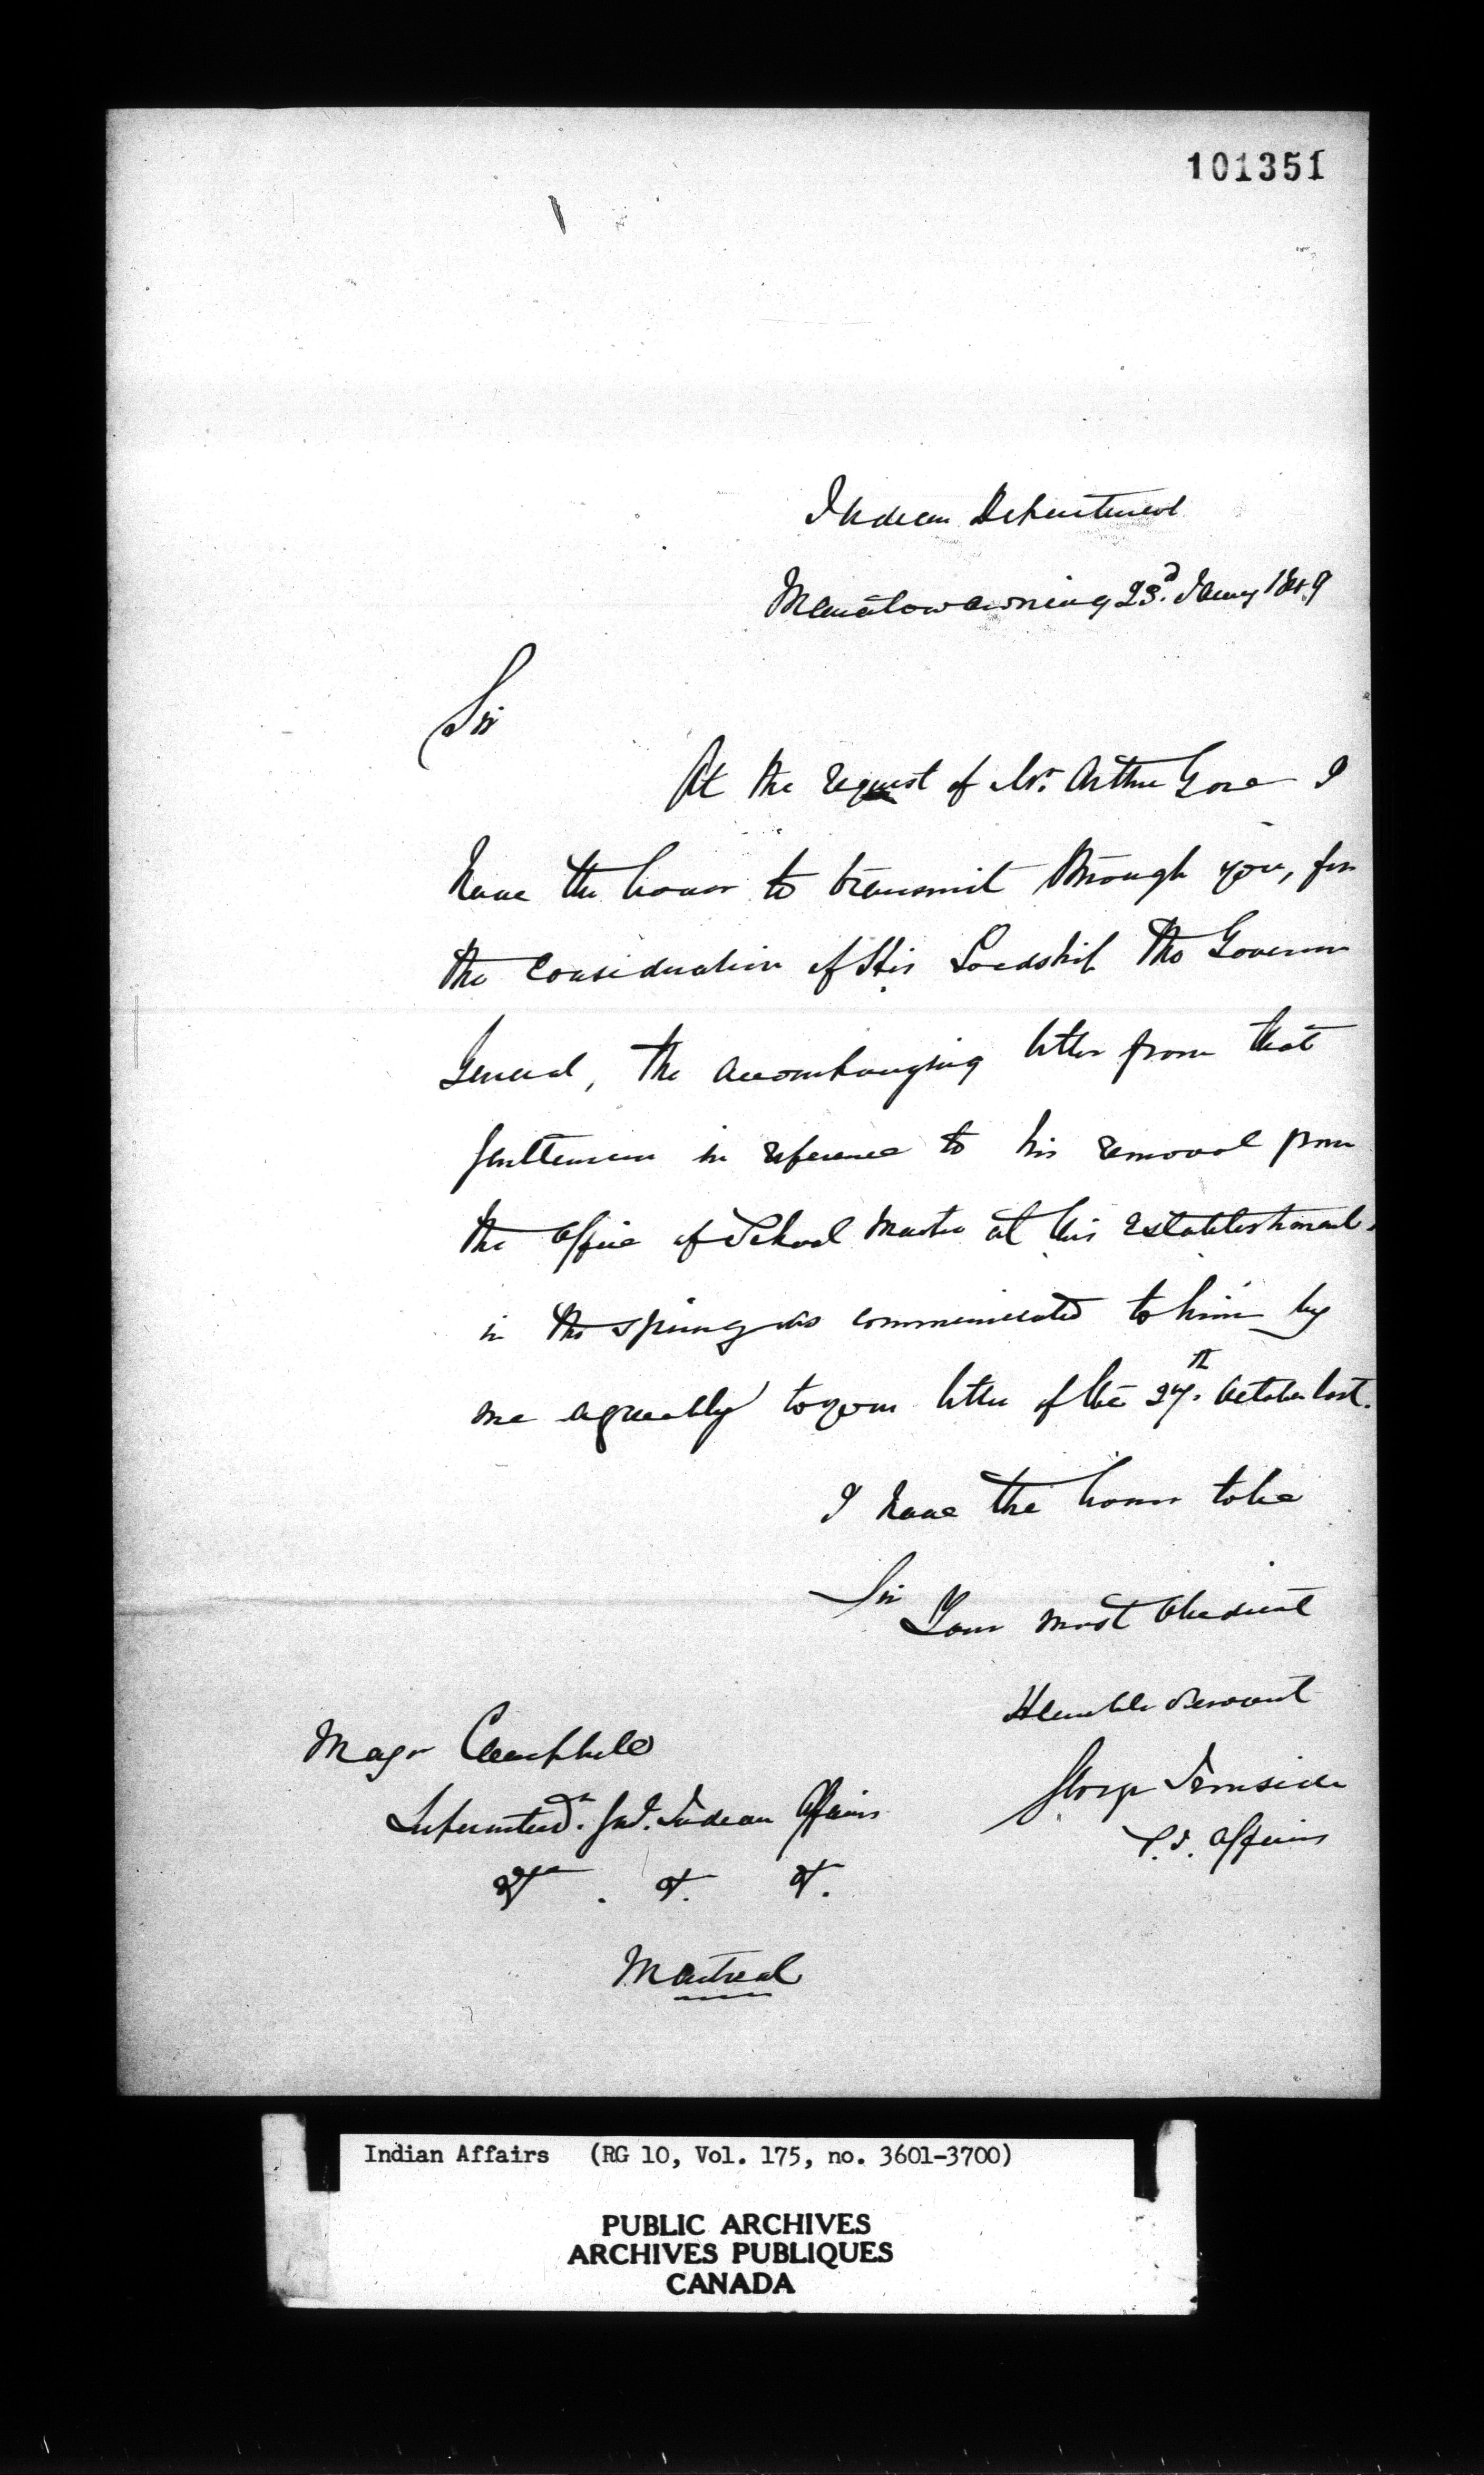 101351
Indian Department
Manatowawning 23d. Jany 1849
Sir
At the request of Mr. Arthur Gore I
have the honor to transmit through you, for
the Consideration of His Lordship the Governor
General, the accompanying letter from that
gentleman in reference to his removal from
the Office of School Master at this Establishment
in the spring as communicated to him by
me agreeably to your letter of the 27th. October last.
I have the honor to be
Sir
Your most Obedient
Humble Servant
George Ironside
S.I. Affairs
Major Campbell
Superintendt. Indian Affairs
& . &. &.
Montreal
Indian Affairs (RG 10, Vol. 175, no. 3601-3700)
PUBLIC ARCHIVES
ARCHIVES PUBLIQUES
CANADA